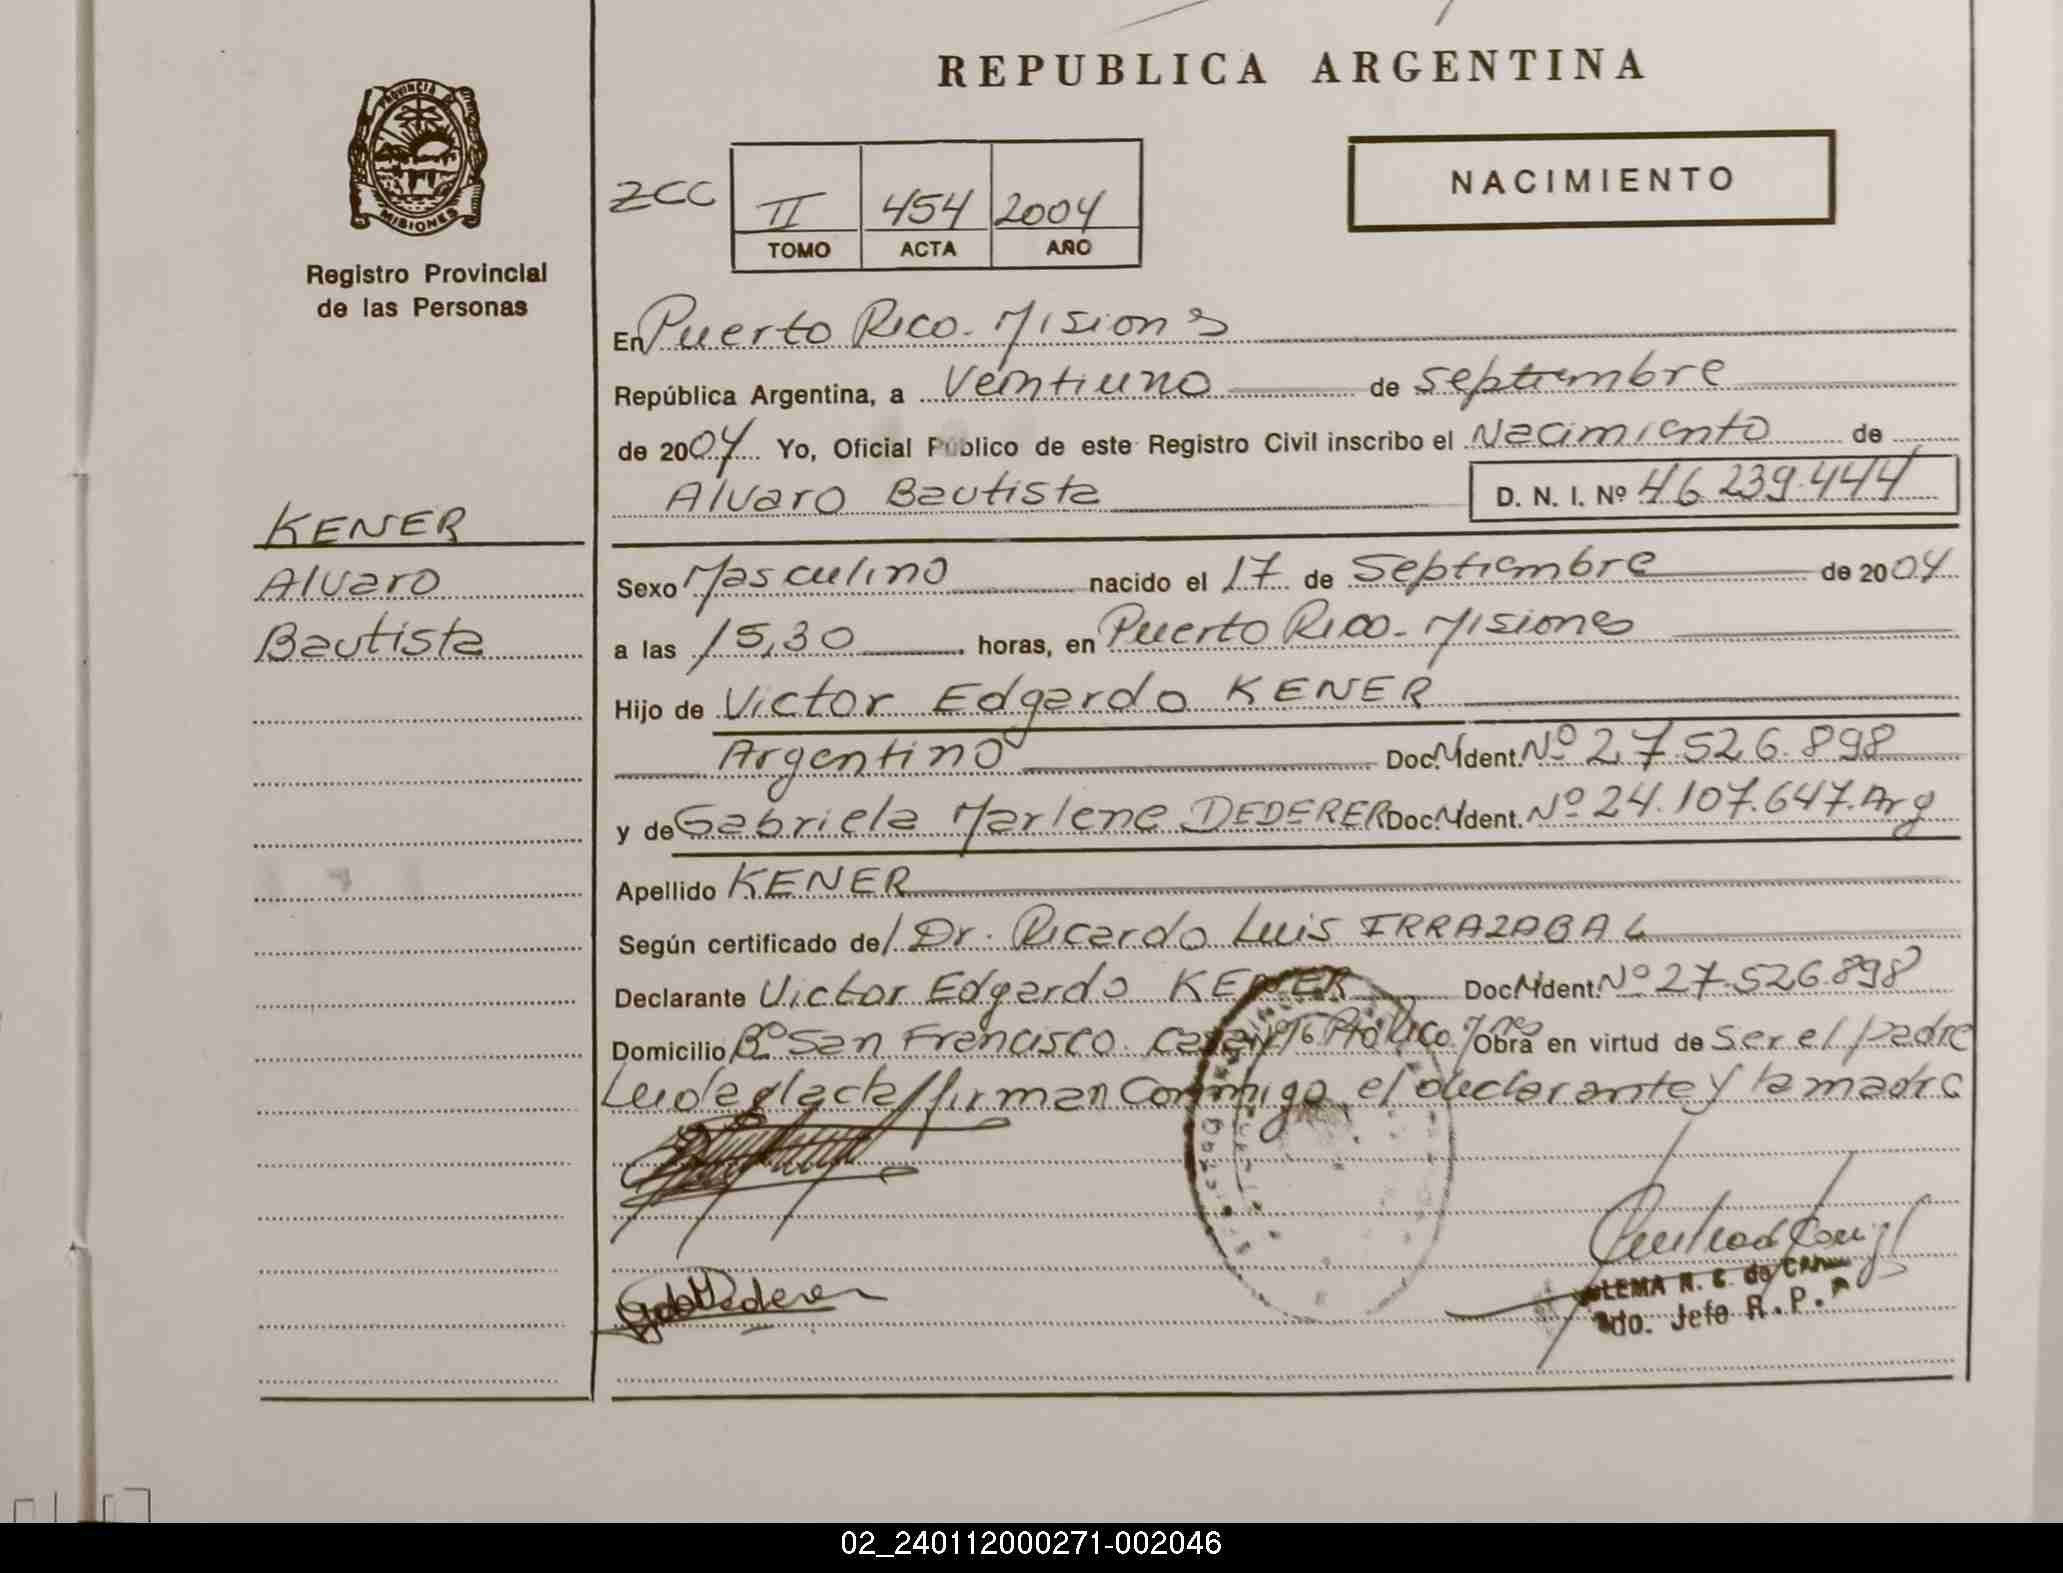 REPUBLICA ARGENTINA
PROVINCIA DE
MISIONES
Registro Provincial
de las Personas
ZCC
II 454 2004
TOMO ACTA AÑO
NACIMIENTO
En Puerto Rico. Misiones
República Argentina, a Veintiuno de Septiembre
de 2004 Yo, Oficial Público de este Registro Civil inscribo el Nacimiento de
Alvaro Bautista D. N. I. Nº 46 239.444
KENER
Alvaro
Bautista
Sexo Masculino nacido el 17 de Septiembre de 2004
a las 15,30 horas, en Puerto Rico. Misiones
Hijo de Victor Edgardo KENER
Argentino Doc. Ident. Nº 27.526.898
y de Gabriela Marlene DEDERER Doc. Ident. Nº 24.107.647. Arg
Apellido KENER
Según certificado del Dr. Ricardo Luis IRRAZABAL
Declarante Victor Edgardo KENER Doc. Ident. Nº 27.526.898
Domicilio Bº San Francisco Casa Nº 6 Pto Rico Mnes Obra en virtud de Ser el padre
Leida el acta firman Conmigo el declarante y la madre
R. C. de
Jefe R. P. P.
02_240112000271-002046